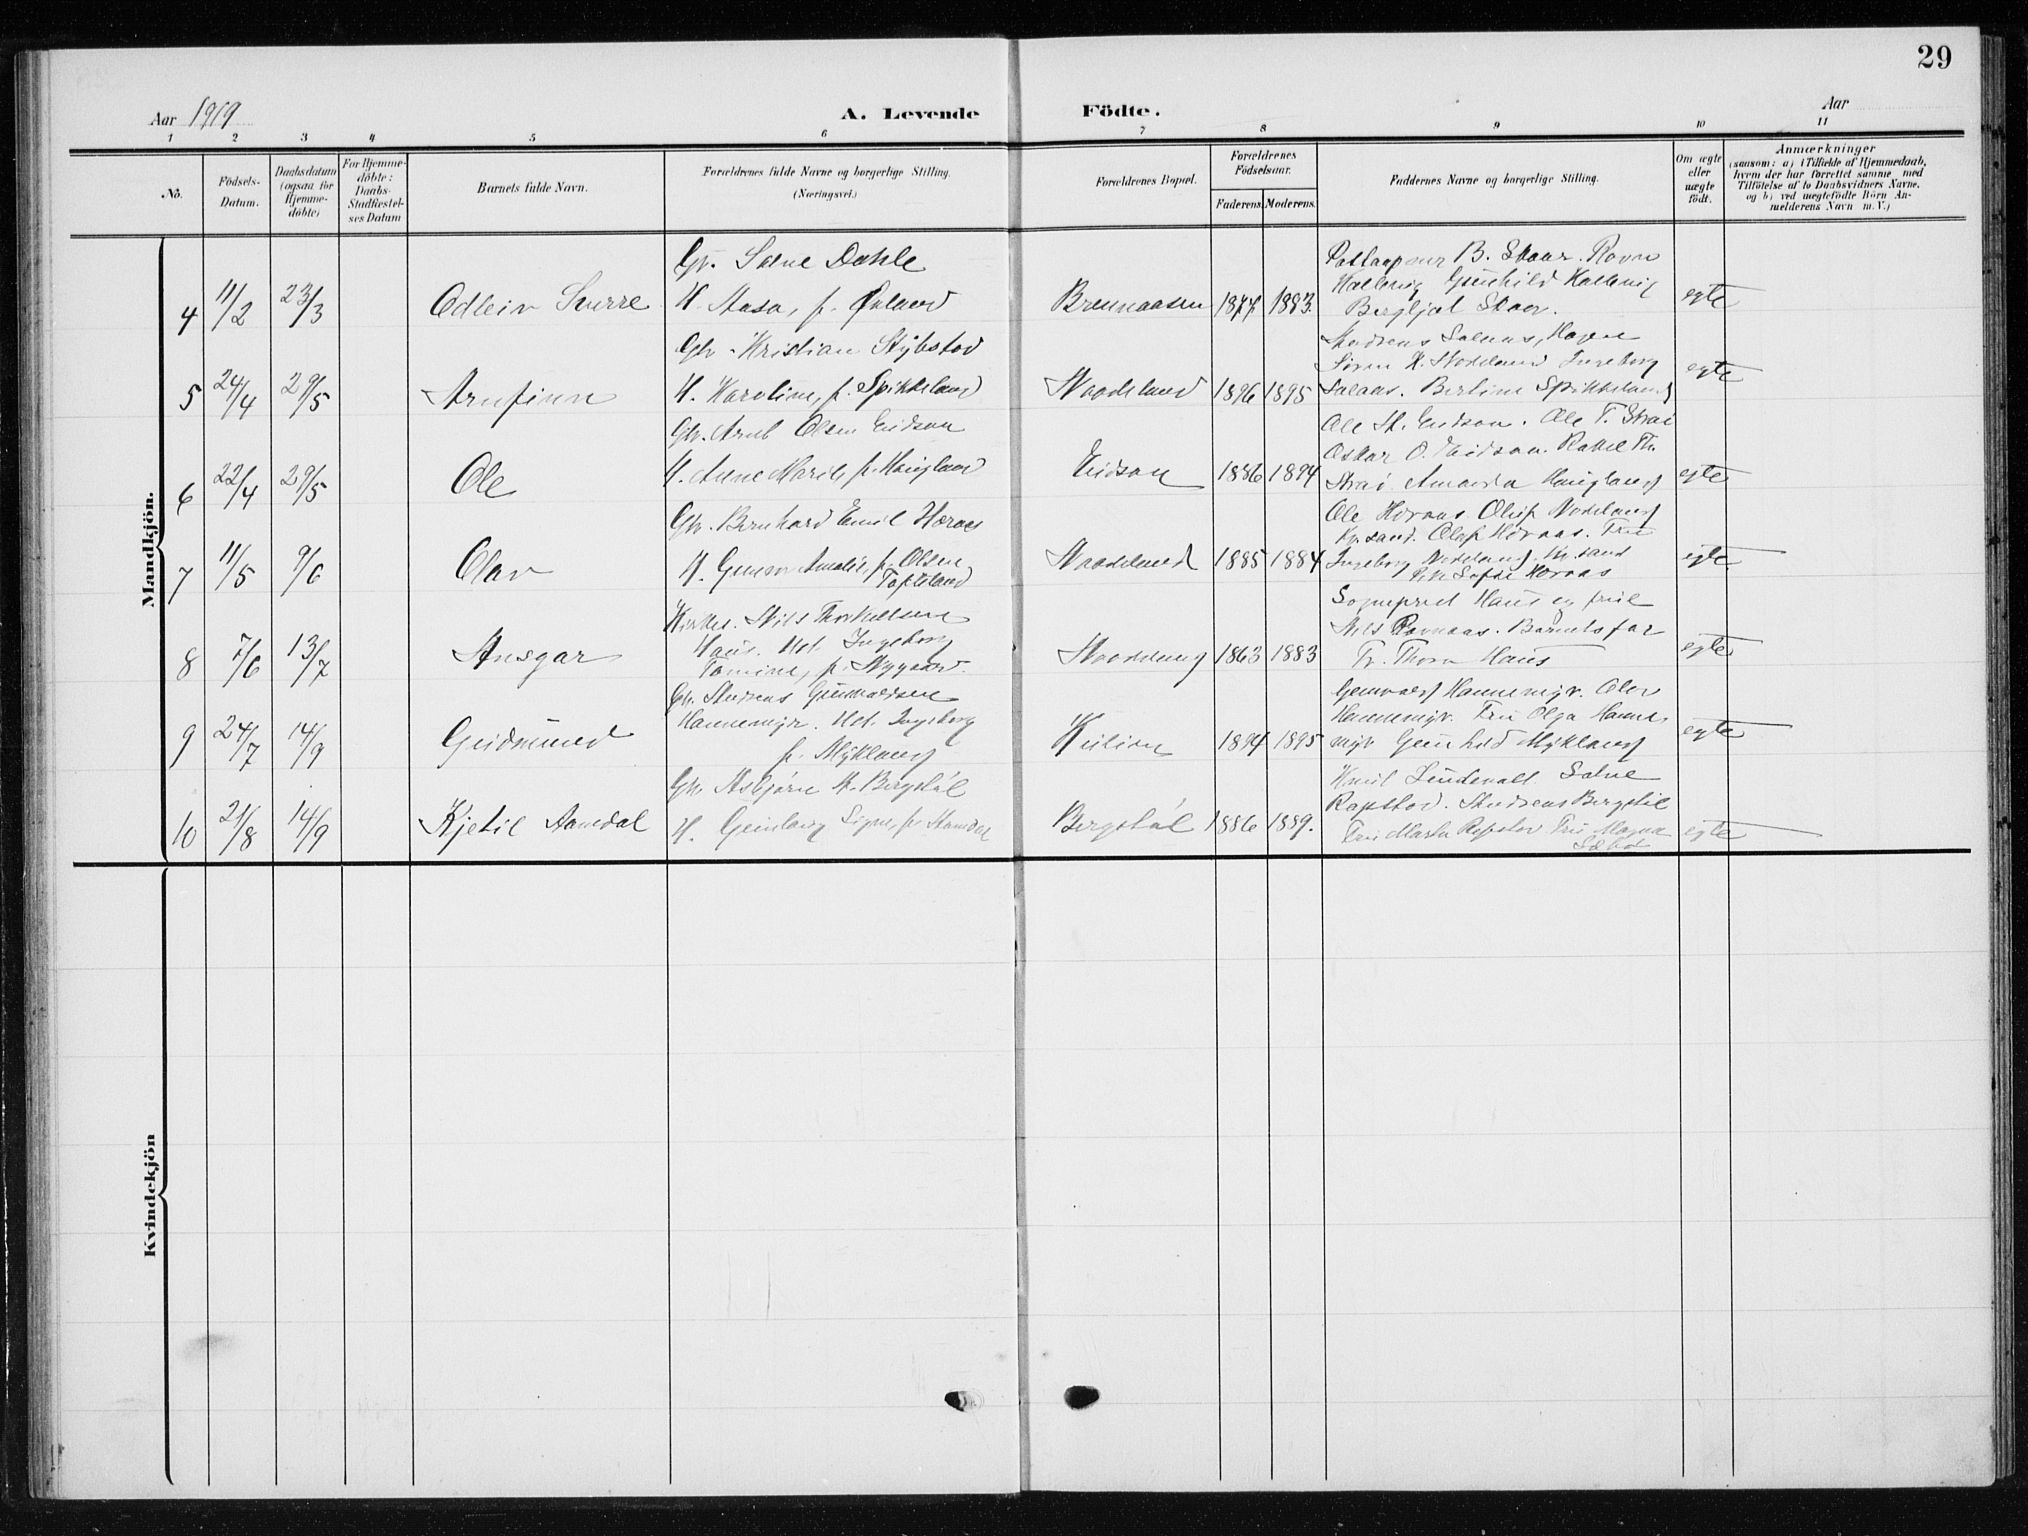 29
Aar 1919
A. Levende Födte.
Aar
1 2 3 4 5 6 7 8 9 10 11
No.
Födsels-
Datum.
Daabsdatum
(ogsaa for
Hjemme-
döbte)
For Hjemme-
döbte:
Daabs-
Stadfæstel-
ses Datum
Barnets fulde Navn.
Forældrenes fulde Navne og borgerlige Stilling.
(Næringsvei.)
Forældrenes Bopæl.
Forældrenes
Födselsaar.
Faderens. Moderens.
Faddernes Navne og borgerlige Stilling.
Om ægte
eller
uægte
födt.
Anmærkninger
(saasom: a) i Tilfælde af Hjemmedaab,
hvem der har forrettet samme med
Tilföielse af to Daabsvidners Navne,
og b) ved uægtefödte Börn An-
melderens Navn m. V.)
Mandkjön.
4 11/2 23/3 Odleiv Sverre
Gb. Salve Dahle
H. Aasa, f. Øvland
Brennaasen 1877 1883.
B. Skaar. Ravn
Gunhild
Skaar.
egte
5 24/4 29/5 Arnfinn
Gb. Kristian Stybstod
H. Karoline, f. Spikkeland
Nodeland 1896 1895
Søren K. Nodeland Ingeborg
Berline Spikkeland
egte
6 22/4 29/5 Ole
Gb. Arnt Olsen Eidson
H. Anne Marie, f. Haugland
Eidson 1886 1894
Ole St. Eidson. Ole T. Strai
Oskar O. Eidson. Rakel Th.
Strai Amanda Haugland
egte
7 11/5 9/6 Olav
Gb. Bernhard Emil Horaas
H. Gunvor Amalie, f. Olsen
Nodeland 1885 1884
Ole Horaas Oluf Nodeland
Kr.sand. Olaf Horaas. Fru
Ingeborg Nodeland, Kr.sand
Sofie Horaas
egte
8 7/6 13/7 Ansgar
Nils Thorkelsen
Haus. Ht. Ingeborg
Tomine, f. Nygaard.
Nodeland 1863 1883
Sogneprest Haus og frue
Nils Barnets far
Fr. Thora Haus
egte
9 24/7 14/9 Gudmund
Gb. Andreas Gunvaldsen
Hannemyr. Ht. Ingeborg
f. Mykland
Kulien 1894 1895
Gunvald Hannemyr. Olav
Hannemyr. Fru Olga Hanne-
myr Gunhild Mykland
egte
10 21/8 14/9 Kjetil Aamdal
Gb. Asbjørn A. Bergstøl
H. Gunlaug Signe, f. Aamdal
Bergstøl 1886 1889.
Lindevall Salve
Rapstad. Andreas Bergstøl
Fru Marta Repstad Fru Magna
egte
Kvindekjön